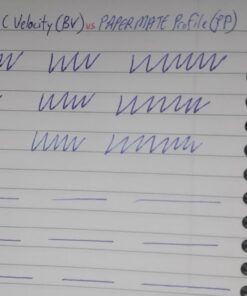 C Velocity (BV) vs PAPERMATE Profile (PP)